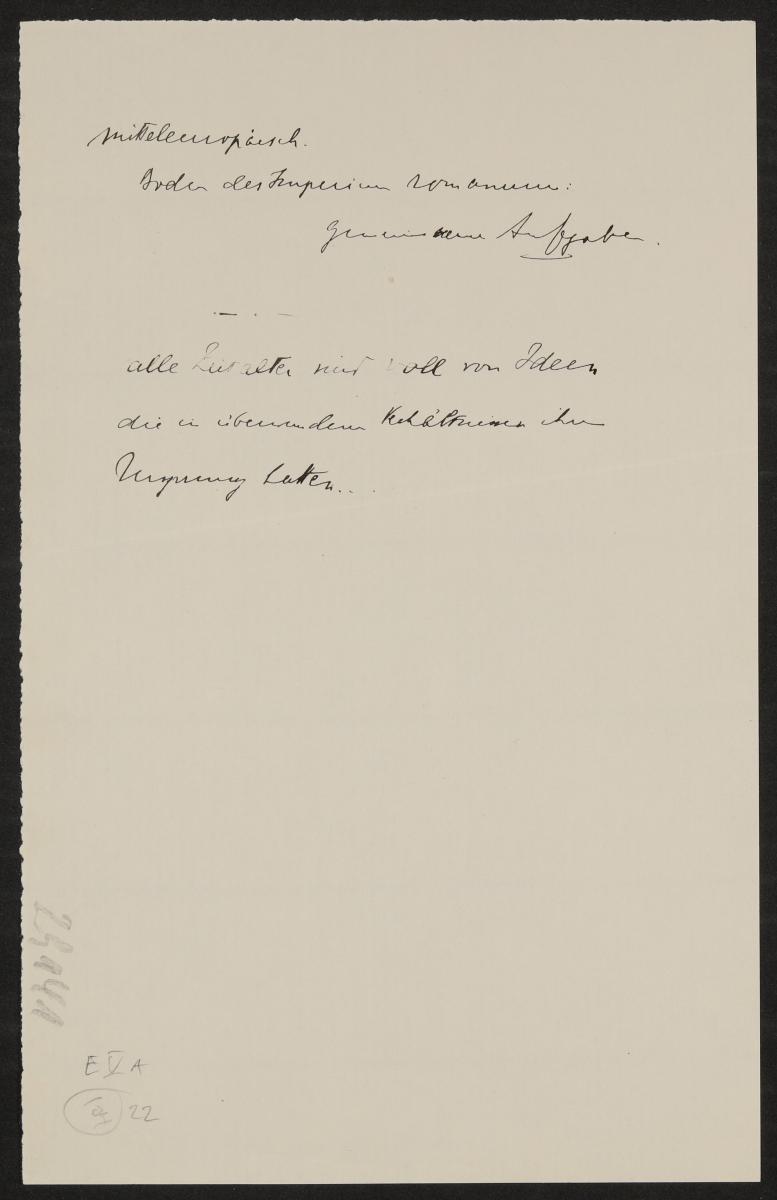 mitteleuropäisch.
Boden des Imperium romanum:
gemeinsame Aufgaben.
alle Zeitalter sind voll von Ideen
die in überwundenen Verhältnissen ihren
Ursprung hatten...
E V A
22